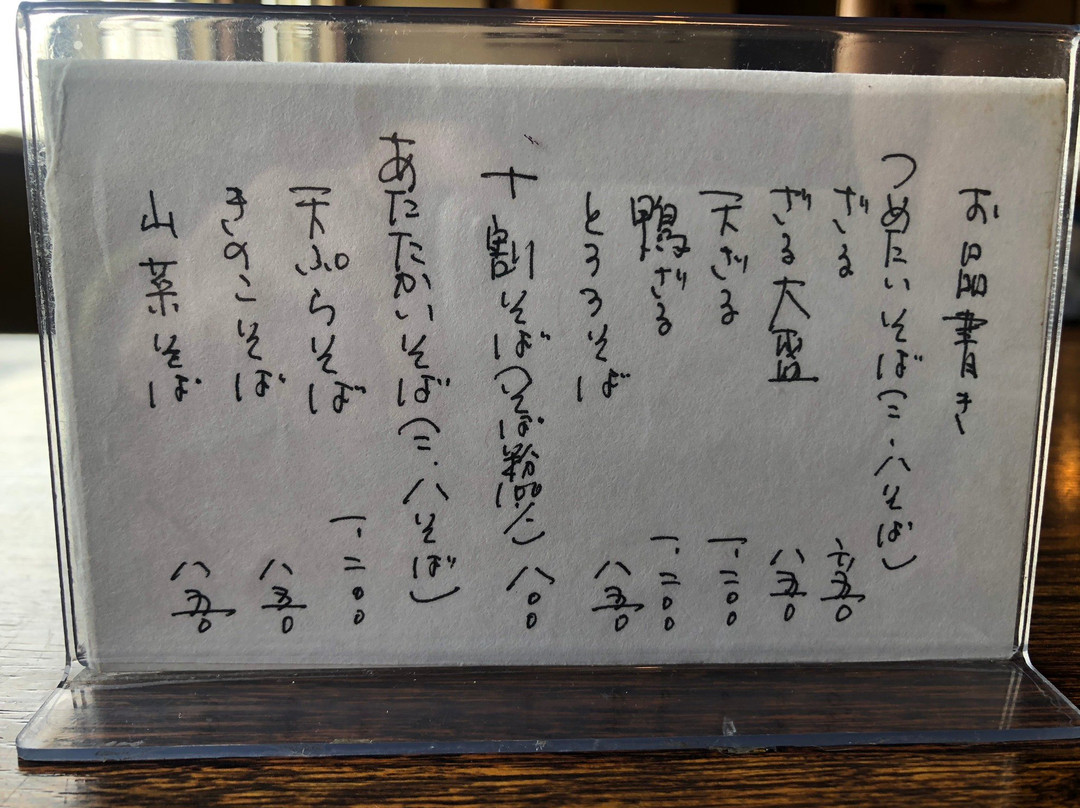 お品書き
つめたいそば(二・八そば)
ざる 六五〇
ざる大盛 八五〇
天ざる 一、二〇〇
鴨ざる 一、二〇〇
とろろそば 八五〇
十割そば(そば粉100%) 八〇〇
あたたかいそば(二・八そば)
天ぷらそば 一、二〇〇
きのこそば 八五〇
山菜そば 八五〇